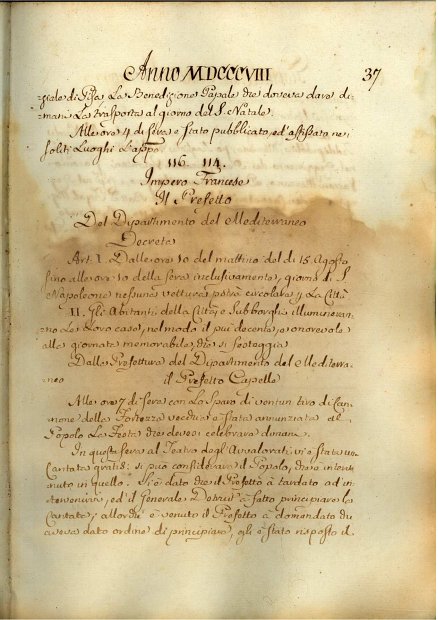 Anno MDCCCVIII 37
ziale di Pisa. La Benedizione Papale che doveva dare di-
mani La trasporta al giorno del S. Natale.
Alle ore 4 di sera è stato pubblicato, ed affissato nei
soliti Luoghi
116. 114.
Impero Francese
Il Prefetto
Del Dipartimento del Mediterraneo
Decreta
Art. I. Dalle ore 10 del mattino del dì 15 Agosto
fino alle ore 10 della sera inclusivamente, giorno di S.
Napoleone nessuna vettura potrà circolare La Città
II. Gli Abitanti della Città, e Subborghi illumineran-
no Le Loro case, nel modo il più decente, e onorevole
alla giornata memorabile, che si festeggia
Dalla Prefettura del Dipartimento del Mediterra-
neo il Prefetto Capelle
Alle ore 7 di sera con Lo Sparo di ventun tiro di Can-
none della Fortezza vecchia è stata annunziata al
Popolo La Festa che devesi celebrare dimani.
In questa sera al Teatro degl'Avvalorati vi è stata una
Cantata gratis: si può considerare il Popolo, che è interve-
nuto in quello. Si è dato che il Prefetto à tardato ad in-
tervenire, ed il Generale à fatto principiare la
Cantata; allorchè è venuto il Prefetto à domandato chi
aveva dato ordine di principiare, gli è stato risposto il